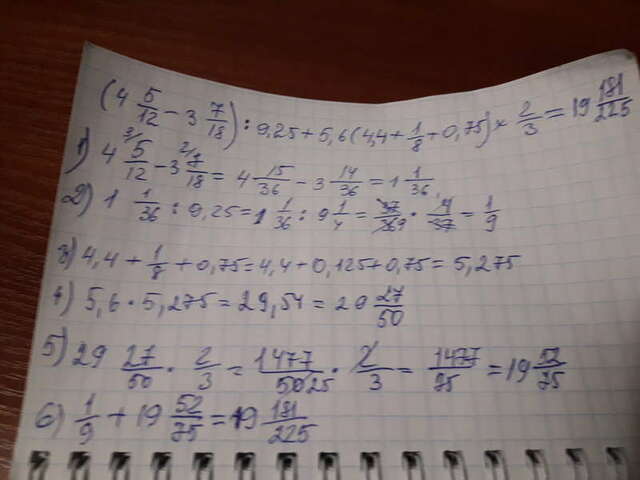 (4 5/12 - 3 7/18) : 9,25 + 5,6 (4,4 + 1/8 + 0,75) × 2/3 = 19 181/225
1) 4 5/12 - 3 7/18 = 4 15/36 - 3 14/36 = 1 1/36
2) 1 1/36 : 9,25 = 1 1/36 : 9 1/4 = 37/36 9 · 4/37 = 1/9
3) 4,4 + 1/8 + 0,75 = 4,4 + 0,125 + 0,75 = 5,275
4) 5,6 · 5,275 = 29,54 = 29 27/50
5) 29 27/50 · 2/3 = 1477/50 25 · 2/3 = 1477/75 = 19 52/75
6) 1/9 + 19 52/75 = 19 181/225